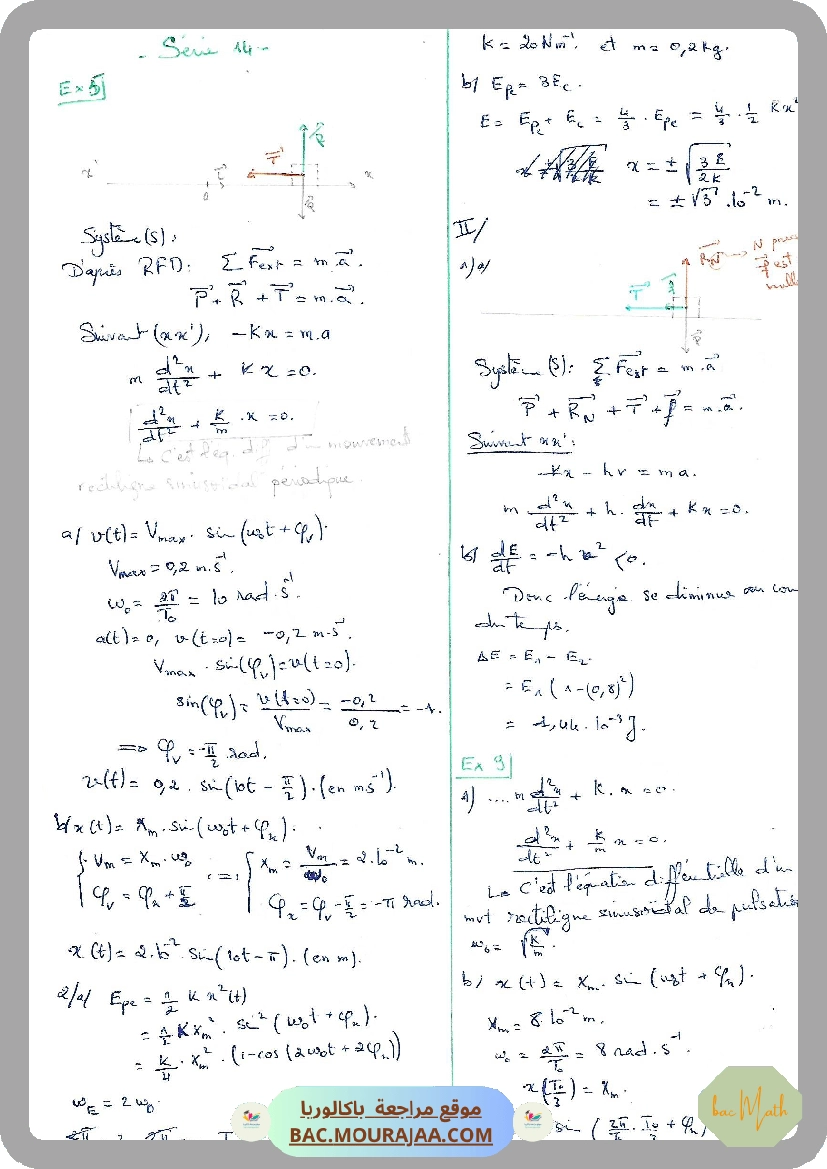 - Série 14 -
Ex 5
x' O i T R P x
Système (S):
D'après RFD: Σ Fext = m.a.
P + R + T = m.a.
Suivant (xx'), -Kx = m.a
m d²x/dt² + K x = 0.
d²x/dt² + K/m . x = 0.
↳ C'est l'éq. diff d'un mouvement
rectiligne sinusoïdal périodique.
a/ v(t) = Vmax. sin(ω0t + φv).
Vmax = 0,2 m.s⁻¹.
ω0 = 2π/T0 = 10 rad.s⁻¹
à (t) = 0, v(t=0) = -0,2 m.s⁻¹.
Vmax . sin(φv) = v(t=0).
sin(φv) = v(t=0)/Vmax = -0,2/0,2 = -1.
=> φv = -π/2 rad.
v(t) = 0,2 . sin(10t - π/2). (en ms⁻¹).
b/ x(t) = Xm . sin(ω0t + φx).
{ Vm = Xm . ω0 { Xm = Vm/ω0 = 2.10⁻² m.
φv = φx + π/2 φx = φv - π/2 = -π rad.
x(t) = 2.10⁻² . sin(10t - π). (en m).
2/a/ Epe = 1/2 K x²(t)
= 1/2 K Xm² . sin²(ω0t + φx).
= K/4 . Xm² . (1 - cos(2ω0t + 2φx))
ωE = 2ω0.
K = 20 N.m⁻¹. et m = 0,2 kg.
b/ Epe = 3Ec.
E = Epe + Ec = 4/3 . Epe = 4/3 . 1/2 Kx²
x = ± √(3E/2K)
= ± √3 . 10⁻² m.
II/
1/a/
T R P
Système (S): Σ Fext = m.a
P + RN + T + f = m.a.
Suivant xx':
-Kx - hv = ma.
m d²x/dt² + h. dx/dt + Kx = 0.
b/ dE/dt = -h v² < 0.
Donc l'énergie se diminue au
du temps.
ΔE = E1 - E2
= E1 (1 - (0,8)²)
= 1,44. 10⁻³ J.
Ex 9
1/ .... m d²x/dt² + K. x = 0.
d²x/dt² + K/m x = 0.
↳ C'est l'équation différentielle d'un
mvt rectiligne sinusoïdal de pulsation
ω0 = √(K/m).
b/ x(t) = Xm . sin(ω0t + φx).
Xm = 8 10⁻² m.
ω0 = 2π/T0 = 8 rad.s⁻¹.
x(T0/3) = Xm.
sin (2π/T0 . T0/3 + φx)
bacMath
موقع مراجعة باكالوريا
BAC.MOURAJAA.COM